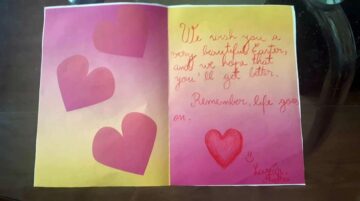 We wish you a
very beautiful Easter,
and we hope that
you'll get better.
Remember, life goes
on.